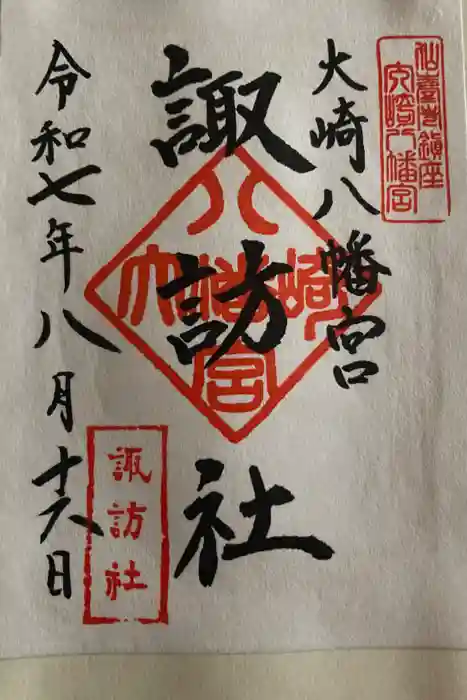 大崎八幡宮
大崎八幡宮
諏訪社
大崎八幡宮
諏訪社
令和七年八月十六日